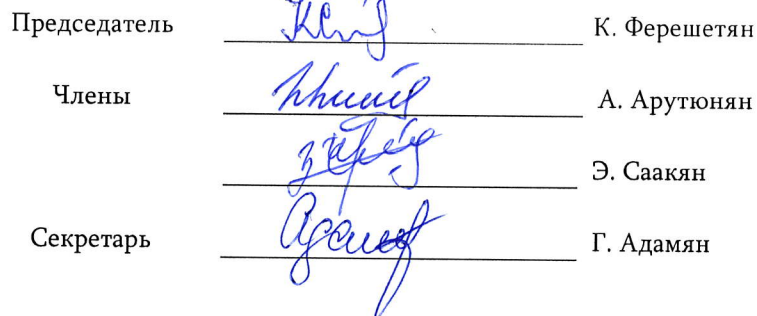 Председатель К. Ферешетян
Члены А. Арутюнян
Э. Саакян
Секретарь Г. Адамян